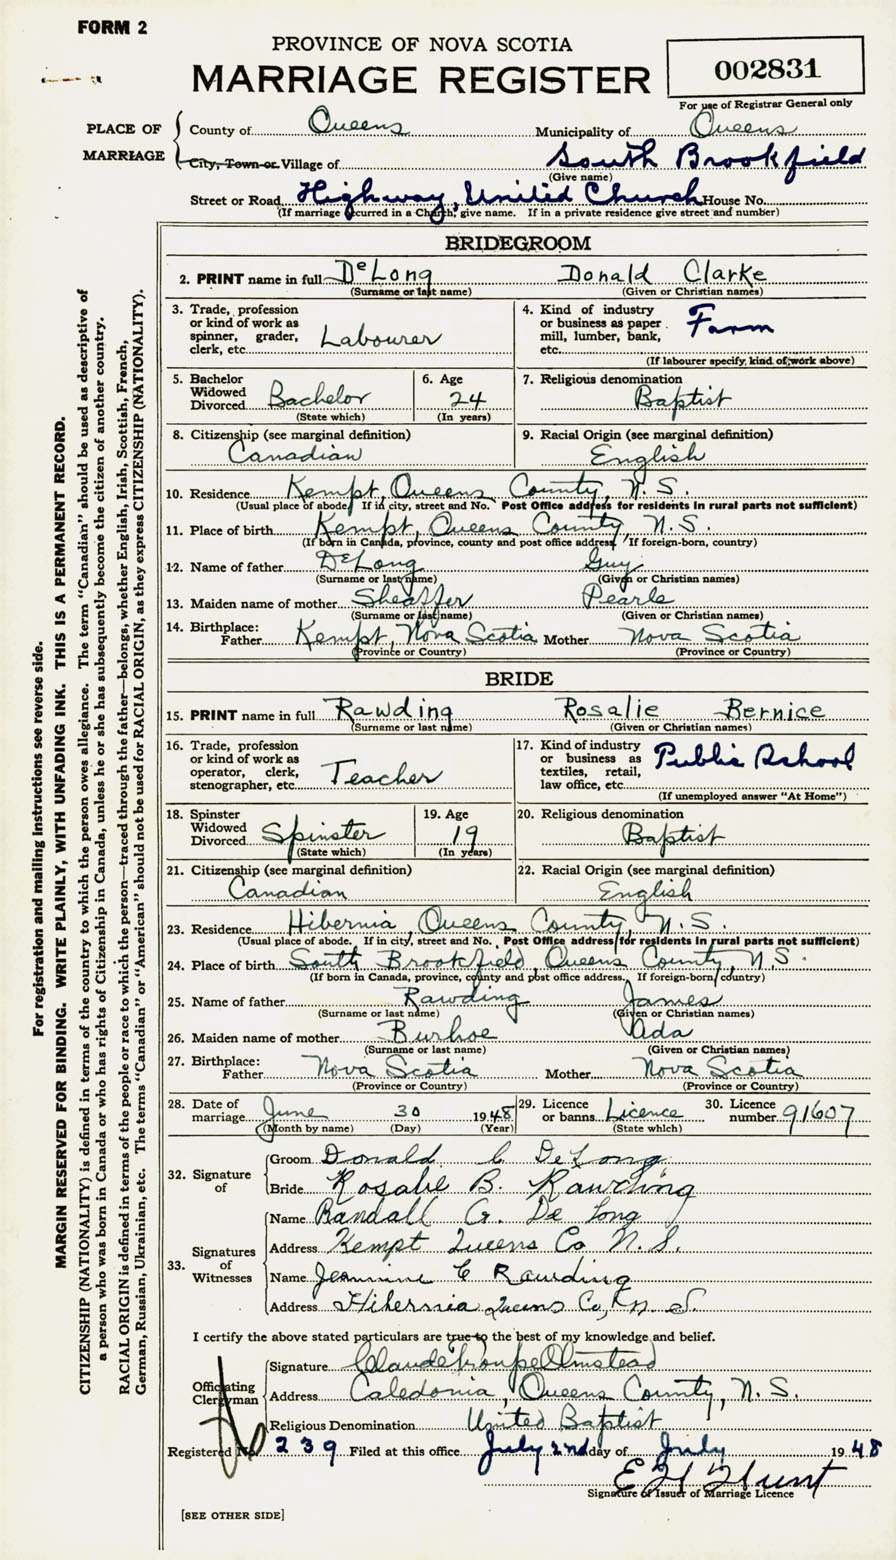 FORM 2
PROVINCE OF NOVA SCOTIA
MARRIAGE REGISTER
002831
For use of Registrar General only
PLACE OF MARRIAGE
County of Queens Municipality of Queens
City, Town or Village of South Brookfield
(Give name)
Street or Road Highway, United Church House No.
(If marriage occurred in a Church, give name. If in a private residence give street and number)
BRIDEGROOM
2. PRINT name in full DeLong Donald Clarke
(Surname or last name) (Given or Christian names)
3. Trade, profession or kind of work as spinner, grader, clerk, etc. Labourer
4. Kind of industry or business as paper mill, lumber, bank, etc. Farm
(If labourer specify kind of work above)
5. Bachelor Widowed Divorced Bachelor
(State which)
6. Age 24
(In years)
7. Religious denomination
Baptist
8. Citizenship (see marginal definition)
Canadian
9. Racial Origin (see marginal definition)
English
10. Residence Kempt, Queens County, N. S.
(Usual place of abode. If in city, street and No. Post Office address for residents in rural parts not sufficient)
11. Place of birth Kempt, Queens County, N. S.
(If born in Canada, province, county and post office address. If foreign-born, country)
12. Name of father DeLong Guy
(Surname or last name) (Given or Christian names)
13. Maiden name of mother Sheaffer Pearle
(Surname or last name) (Given or Christian names)
14. Birthplace: Father Kempt, Nova Scotia Mother Nova Scotia
(Province or Country) (Province or Country)
BRIDE
15. PRINT name in full Rawding Rosalie Bernice
(Surname or last name) (Given or Christian names)
16. Trade, profession or kind of work as operator, clerk, stenographer, etc. Teacher
17. Kind of industry or business as textiles, retail, law office, etc. Public School
(If unemployed answer "At Home")
18. Spinster Widowed Divorced Spinster
(State which)
19. Age 19
(In years)
20. Religious denomination
Baptist
21. Citizenship (see marginal definition)
Canadian
22. Racial Origin (see marginal definition)
English
23. Residence Hibernia, Queens County, N. S.
(Usual place of abode. If in city, street and No. Post Office address for residents in rural parts not sufficient)
24. Place of birth South Brookfield, Queens County, N. S.
(If born in Canada, province, county and post office address. If foreign-born country)
25. Name of father Rawding James
(Surname or last name) (Given or Christian names)
26. Maiden name of mother Burhoe Ada
(Surname or last name) (Given or Christian names)
27. Birthplace: Father Nova Scotia Mother Nova Scotia
(Province or Country) (Province or Country)
28. Date of marriage June 30 1948
(Month by name) (Day) (Year)
29. Licence or banns Licence
(State which)
30. Licence number 91607
32. Signature of
Groom Donald C DeLong
Bride Rosalie B. Rawding
33. Signatures of Witnesses
Name Randall G. De Long
Address Kempt Queens Co N. S.
Name Jeannine E Rawding
Address Hibernia Queens Co, N. S.
I certify the above stated particulars are true to the best of my knowledge and belief.
Officiating Clergyman
Signature Claude Olmstead
Address Caledonia, Queens County, N. S.
Religious Denomination United Baptist
Registered No. 239 Filed at this office July 2nd day of July 1948
E H Hunt
Signature of Issuer of Marriage Licence
[SEE OTHER SIDE]
For registration and mailing instructions see reverse side.
MARGIN RESERVED FOR BINDING. WRITE PLAINLY, WITH UNFADING INK. THIS IS A PERMANENT RECORD.
CITIZENSHIP (NATIONALITY) is defined in terms of the country to which the person owes allegiance. The term "Canadian" should be used as descriptive of
a person who was born in Canada or who has rights of Citizenship in Canada, unless he or she has subsequently become the citizen of another country.
RACIAL ORIGIN is defined in terms of the people or race to which the person—traced through the father—belongs, whether English, Irish, Scottish, French,
German, Russian, Ukrainian, etc. The terms "Canadian" or "American" should not be used for RACIAL ORIGIN, as they express CITIZENSHIP (NATIONALITY).